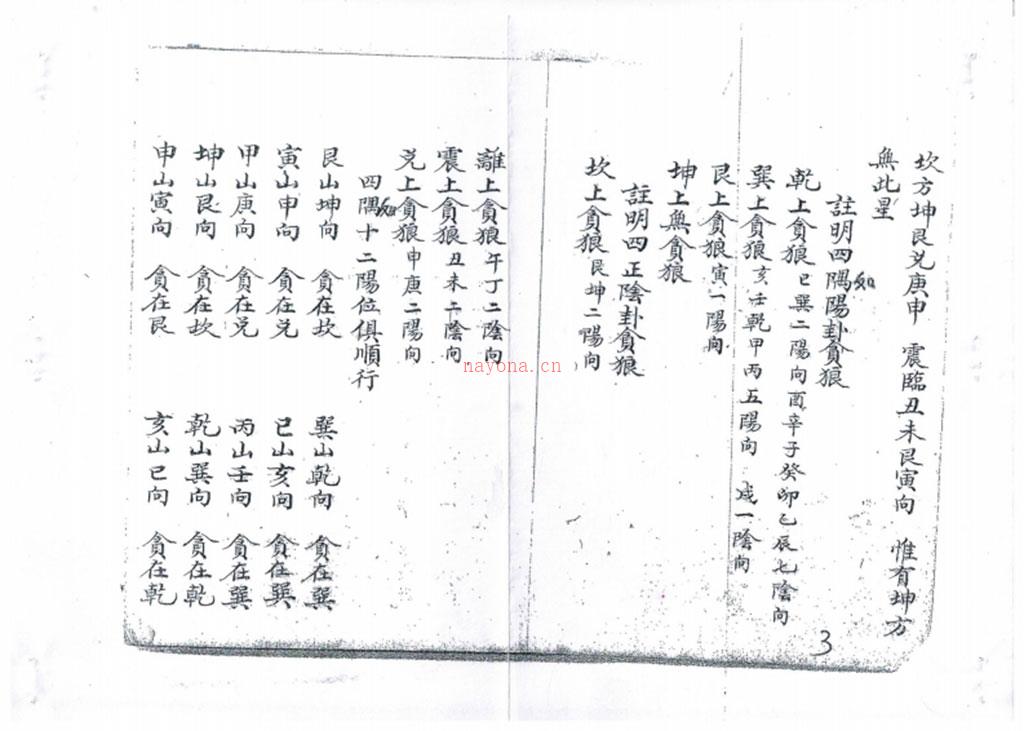 坎方坤艮兌庚申 震臨丑未艮寅向 惟有坤方
無此星
註明四隅陽卦如貪狼
乾上貪狼巳巽二陽向酉辛子癸卯乙辰七陰向
巽上貪狼亥壬乾甲丙五陽向 戌一陰向
艮上貪狼寅一陽向
坤上無貪狼
註明四正陰卦貪狼
坎上貪狼艮坤二陽向
離上貪狼午丁二陰向
震上貪狼丑未二陰向
兌上貪狼申庚二陽向
四隅如十二陽位俱順行
艮山坤向 貪在坎 巽山乾向 貪在巽
寅山申向 貪在兌 巳山亥向 貪在巽
甲山庚向 貪在兌 丙山壬向 貪在巽
坤山艮向 貪在坎 乾山巽向 貪在乾
申山寅向 貪在艮 亥山巳向 貪在乾
3
nayona.cn